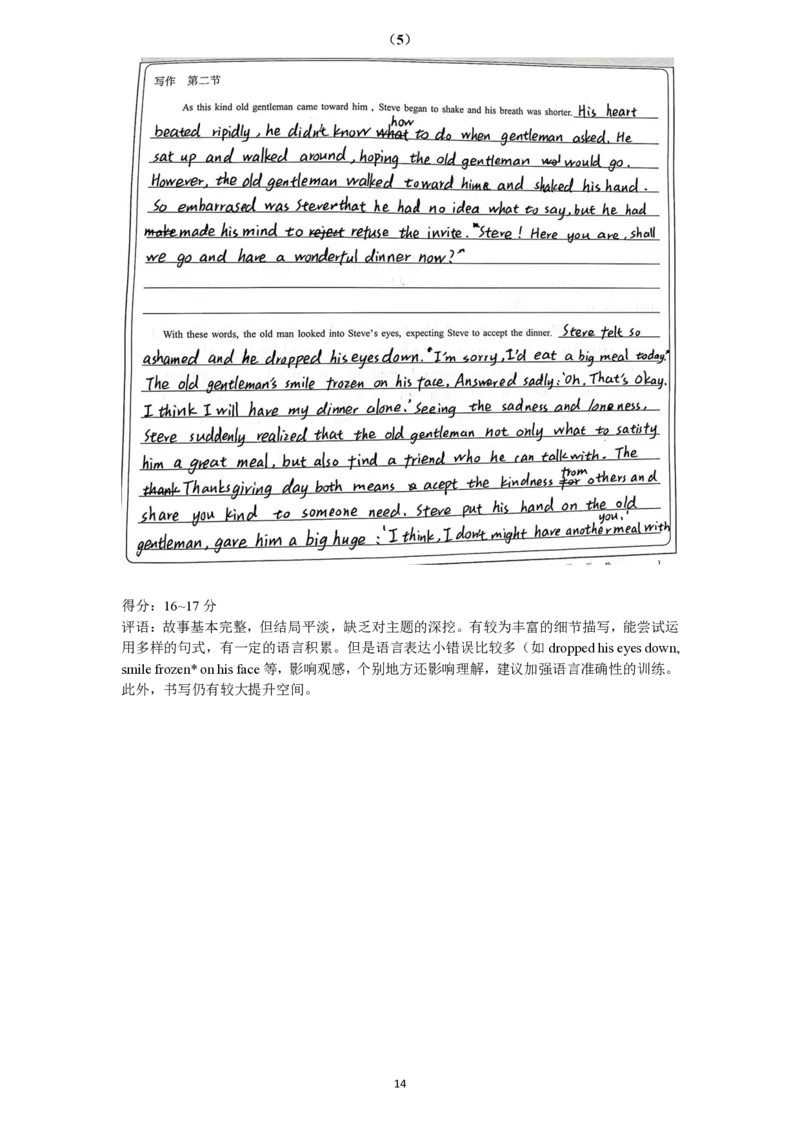 （5）
写作 第二节
As this kind old gentleman came toward him , Steve began to shake and his breath was shorter. His heart
beated ripidly, he didn't know what how to do when gentleman asked. He
sat up and walked around, hoping the old gentleman wo would go.
However, the old gentleman walked toward him and shaked his hand.
So embarrased was Steve that he had no idea what to say, but he had
make made his mind to reject refuse the invite. "Steve! Here you are, shall
we go and have a wonderful dinner now?"
With these words, the old man looked into Steve's eyes, expecting Steve to accept the dinner. Steve felt so
ashamed and he dropped his eyes down. "I'm sorry, I'd eat a big meal today."
The old gentleman's smile frozen on his face, Answered sadly: 'Oh, That's Okay,
I think I will have my dinner alone.' Seeing the sadness and loneness,
Steve suddenly realized that the old gentleman not only what to satisty
him a great meal, but also find a friend who he can talk with. The
thank Thanksgiving day both means acept the kindness for from others and
share you kind to someone need. Steve put his hand on the old
gentleman, gave him a big huge : 'I think, I don't might have another meal with
you.'
得分：16~17 分
评语：故事基本完整，但结局平淡，缺乏对主题的深挖。有较为丰富的细节描写，能尝试运
用多样的句式，有一定的语言积累。但是语言表达小错误比较多（如 dropped his eyes down,
smile frozen* on his face 等，影响观感，个别地方还影响理解，建议加强语言准确性的训练。
此外，书写仍有较大提升空间。
14